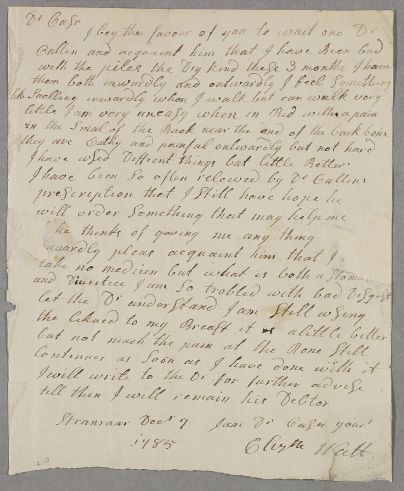 Dr Casn
I beg the favour of you to wait one Dr
Cullin and acquaint him that I have Been bad
with the piles the Dry kind these 3 months I have
them both inwardly and outwardly I feel Something
lik Swelling inwardly when I walk but can walk very
little I am very uneasy when in Bed with a pain
in the Smal of the Back near the end of the Back bone
they are and painful outwardly but not hard
I have used Diffrent things but little Better
I have been So often releved by Dr Cullens
prescription that I Still have hope he
will order Something that may help me
he thinks of geving me any thing
inwardly pleas acquaint him that I
take no medicin but what is both a Stomac
and I am So trobled with bad Disgest
let the Dr understand I am Still using
the likued to my Breast it is a little better
but not much the pain at the Bone Still
Continues as Soon as I have done with it
I will write to the Dr for further advise
till then I will remain his Debtor
Stranraar Decr 7 I am Dr Casn your
1785
Watt